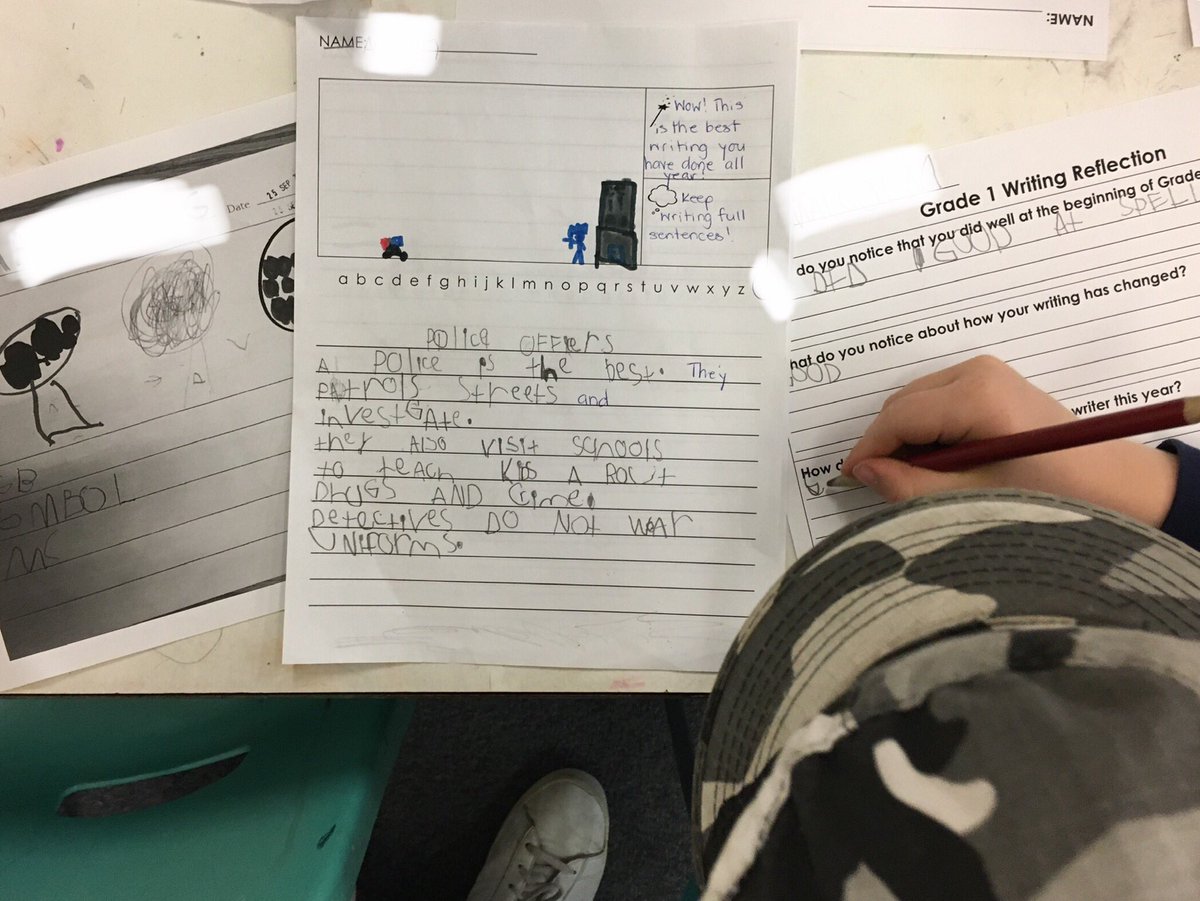 NAME:
Date 25 SEP
OMBOL
NAME:
Wow! This
is the best
writing you
have done all
year!
Keep
writing full
sentences!
a b c d e f g h i j k l m n o p q r s t u v w x y z
POLice OFFicrs
A POLice is the best. They
PAtrols Streets and
invest GAte.
they ALSO visit schools
to teAch KiDs A BOUt
DrUGS AND Crime.
Detectives DO NOT WeAr
UNiForms.
Grade 1 Writing Reflection
do you notice that you did well at the beginning of Grade
DED GOOD At SPELI
hat do you notice about how your writing has changed?
OOD
writer this year?
How d